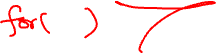 for( )